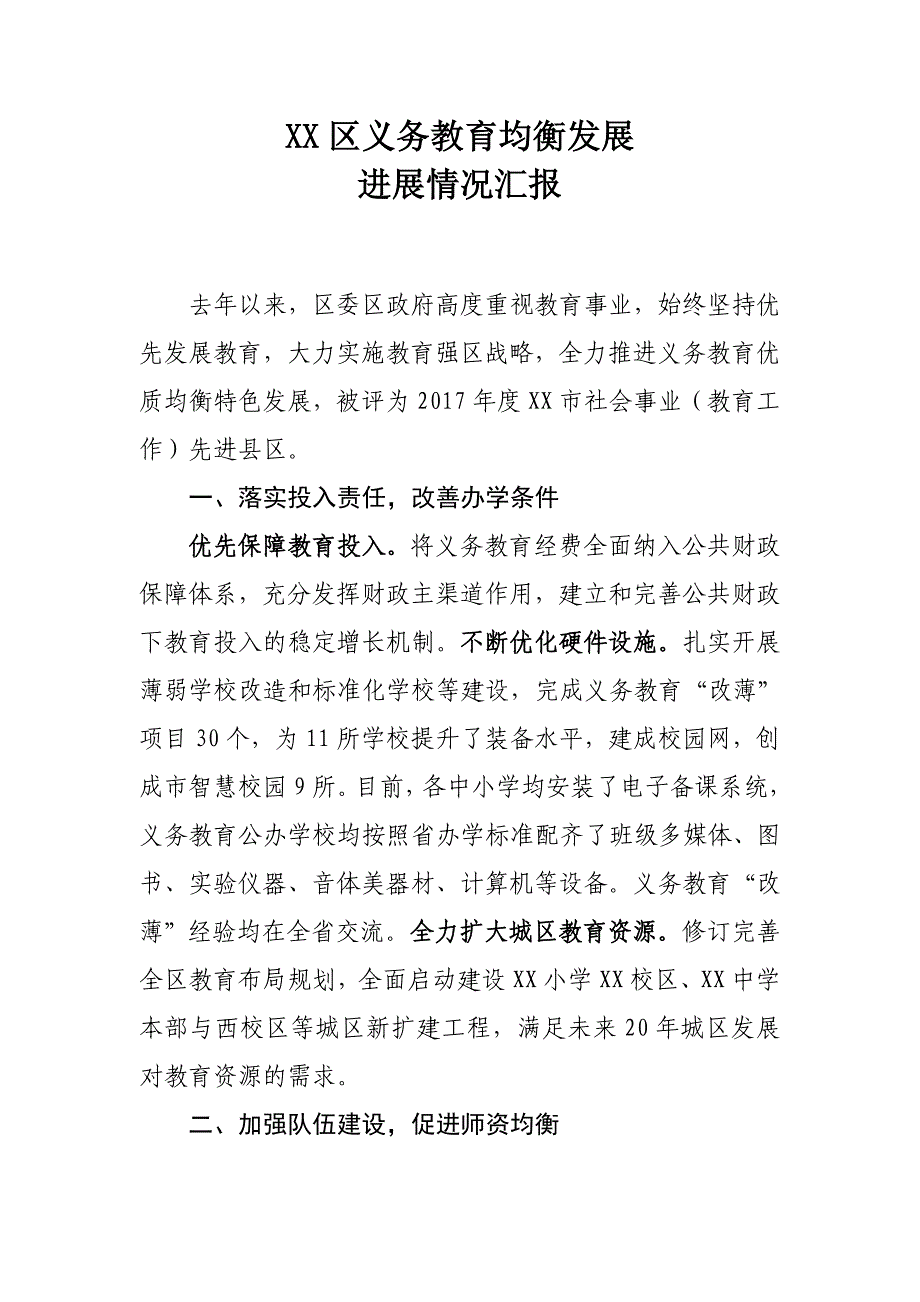 XX 区义务教育均衡发展
进展情况汇报
去年以来，区委区政府高度重视教育事业，始终坚持优
先发展教育，大力实施教育强区战略，全力推进义务教育优
质均衡特色发展，被评为 2017 年度 XX 市社会事业（教育工
作）先进县区。
一、落实投入责任，改善办学条件
优先保障教育投入。将义务教育经费全面纳入公共财政
保障体系，充分发挥财政主渠道作用，建立和完善公共财政
下教育投入的稳定增长机制。不断优化硬件设施。扎实开展
薄弱学校改造和标准化学校等建设，完成义务教育“改薄”
项目 30 个，为 11 所学校提升了装备水平，建成校园网，创
成市智慧校园 9 所。目前，各中小学均安装了电子备课系统，
义务教育公办学校均按照省办学标准配齐了班级多媒体、图
书、实验仪器、音体美器材、计算机等设备。义务教育“改
薄”经验均在全省交流。全力扩大城区教育资源。修订完善
全区教育布局规划，全面启动建设 XX 小学 XX 校区、XX 中学
本部与西校区等城区新扩建工程，满足未来 20 年城区发展
对教育资源的需求。
二、加强队伍建设，促进师资均衡